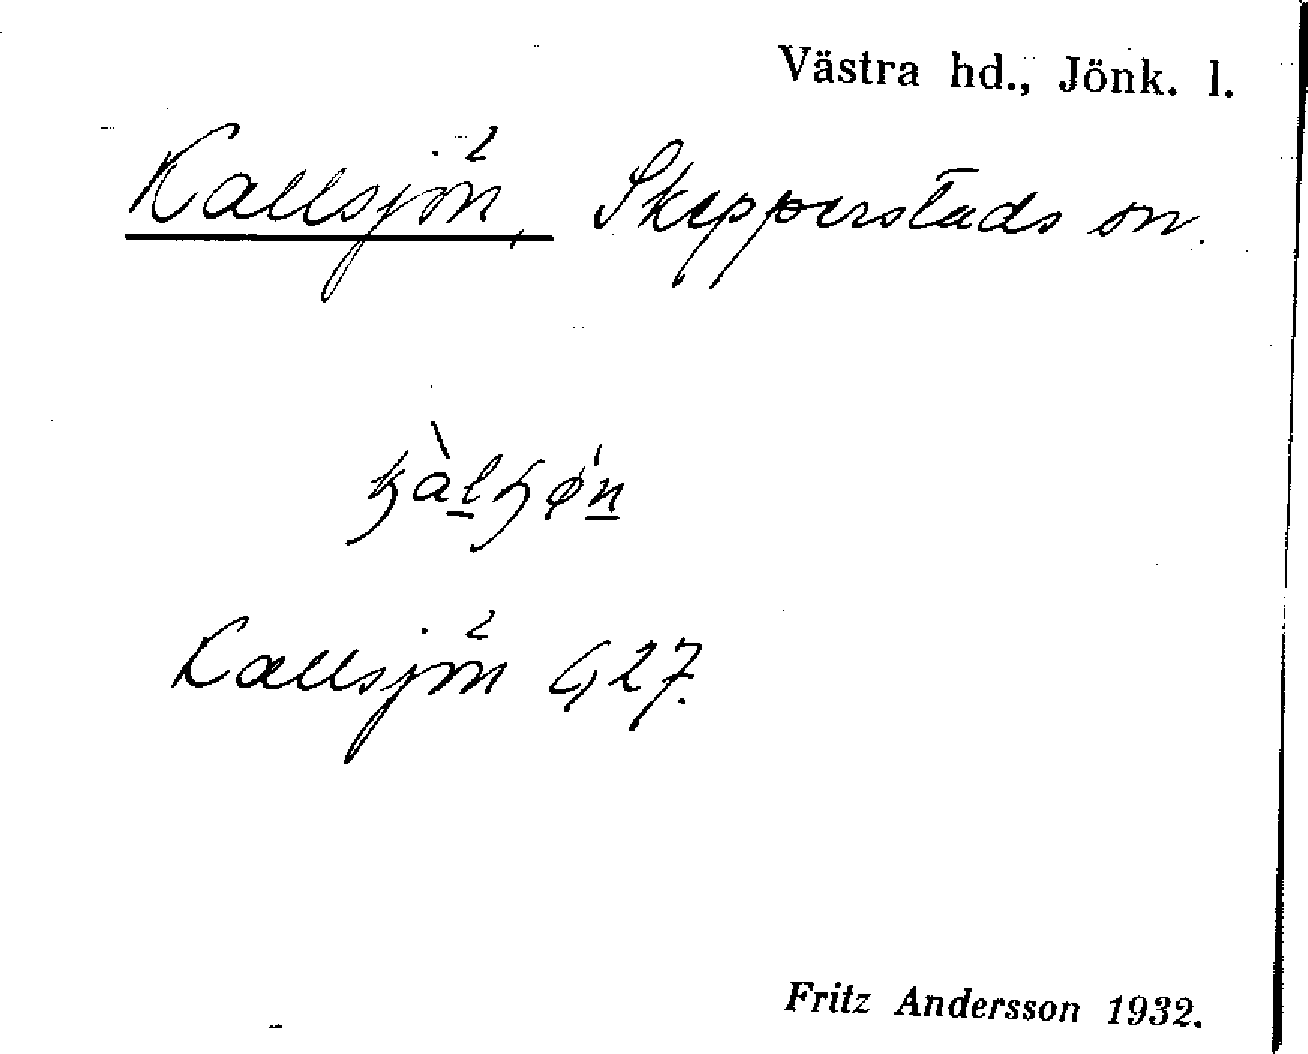 Västra hd., Jönk. l.
Kallsjön, Skepperstads sn.
Kallsjön G, 27.
Fritz Andersson 1932.